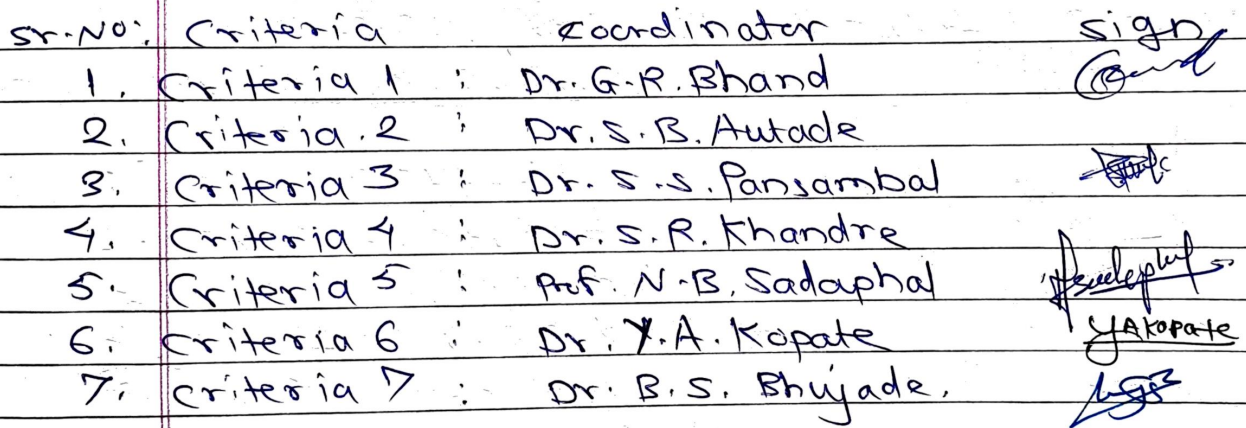 Sr. No: Criteria Coordinator Sign
1. Criteria 1 : Dr. G. R. Bhand
2. Criteria. 2 : Dr. S. B. Autade
3. Criteria 3 : Dr. S. S. Pansambal
4. Criteria 4 : Dr. S. R. Khandre
5. Criteria 5 : Prof. N. B. Sadaphal
6. Criteria 6 : Dr. Y. A. Kopate YAKopate
7. Criteria 7 : Dr. B. S. Bhujade.